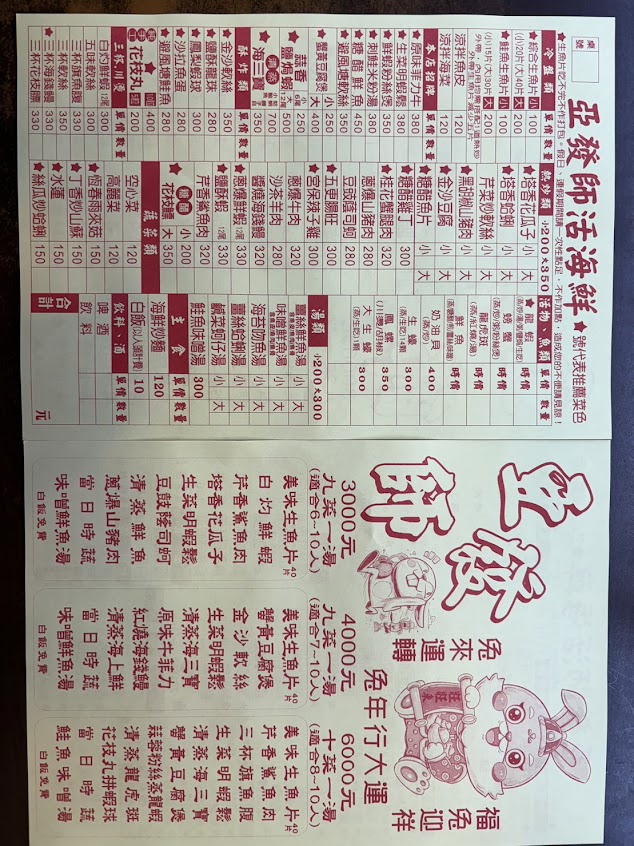 桌號
亞發師活海鮮
★號代表推薦菜色
冷盤類 單價 數量
★綜合生魚片 小 100
(小)20片(大)40片 大 200
★鮭魚生魚片 小 100
(小)15片(大)30片 大 200
涼拌魚皮 120
涼拌海蜇 120
本店招牌 單價 數量
★原味菲力牛 380
★生菜明蝦鬆 380
★鮮蝦粉絲煲 350
★刺鮭米粉湯 380
★糖醋鮮魚 450
★避風糖軟絲 350
★蟹黃豆腐煲 小 250
大 400
★蒜香鹽焗蝦
★海三寶
酥炸類 單價 數量
★金沙軟絲 350
★鹽酥龍珠 280
★鳳梨蝦球 300
★沙拉魚蛋 280
★避風塘鮭魚 280
花枝丸
三杯.川燙 單價 數量
白灼鮮蝦 300
五味軟絲 300
三杯旗魚腹 330
三杯軟絲 350
★三杯海錢鰻 350
三杯花枝腰 330
熱炒類 小200大350
★塔香花瓜子 小 大
★塔香蛤蜊 小 大
芹菜炒軟絲 小 大
★黑胡椒山豬肉 小 大
★金沙豆腐 小 大
★糖醋魚片 小 大
★糖醋雞丁 300
★桂花蟹腿肉 320
豆豉蔭司蚵 280
蔥爆山豬肉 280
★五更腸旺 300
★宮保辣子雞 300
蔥爆牛肉 320
沙茶牛肉 280
醬燒海錢鰻 320
★蔥爆鮮蝦 330
★鹽酥蝦 330
芹香鯊魚肉 320
蔬菜類
空心菜 120
高麗菜 120
★恆春龍葵菇 150
★丁香炒山蘇 150
★水蓮 150
★絲瓜炒蛤蜊 150
活物、魚類 單價 數量
★龍蝦 時價
螃蟹 時價
龍虎斑 時價
鮮魚 時價
奶油貝 400
生蠔 300
鳳螺 350
大生蠔 300
湯類 小200大300
薑絲鮮魚湯 小 大
味噌鮮魚湯 小 大
海苔吻魚湯 小 大
薑絲蛤蜊湯 小 大
鹹菜蚵仔湯 小 大
鮭魚味噌湯 300
主食 單價 數量
海鮮炒麵 120
白飯(以人頭計費) 10
飲料、酒 單價 數量
啤酒
飲料
合計 元
亞發師
兔來運轉
兔年行大運
福兔迎祥
3000元
九菜一湯
(適合6~10人)
美味生魚片40片
白灼鮮蝦
芹香鯊魚肉
塔香花瓜子
生菜明蝦鬆
豆豉蔭司蚵
清蒸鮮魚
蔥爆山豬肉
當日時蔬
味噌鮮魚湯
白飯免費
4000元
九菜一湯
(適合7~10人)
美味生魚片40片
蟹黃豆腐煲
金沙軟絲
生菜明蝦鬆
清蒸海三寶
原味牛菲力
紅燒海錢鰻
清蒸海上鮮
當日時蔬
味噌鮮魚湯
白飯免費
6000元
十菜一湯
(適合8~10人)
美味生魚片40片
芹香鯊魚肉
三杯旗魚腹
生菜明蝦鬆
清蒸海三寶
蟹黃豆腐煲
蒜蓉粉絲蒸龍蝦
清蒸龍虎斑
花枝丸拼蝦球
當日時蔬
鮭魚味噌湯
白飯免費